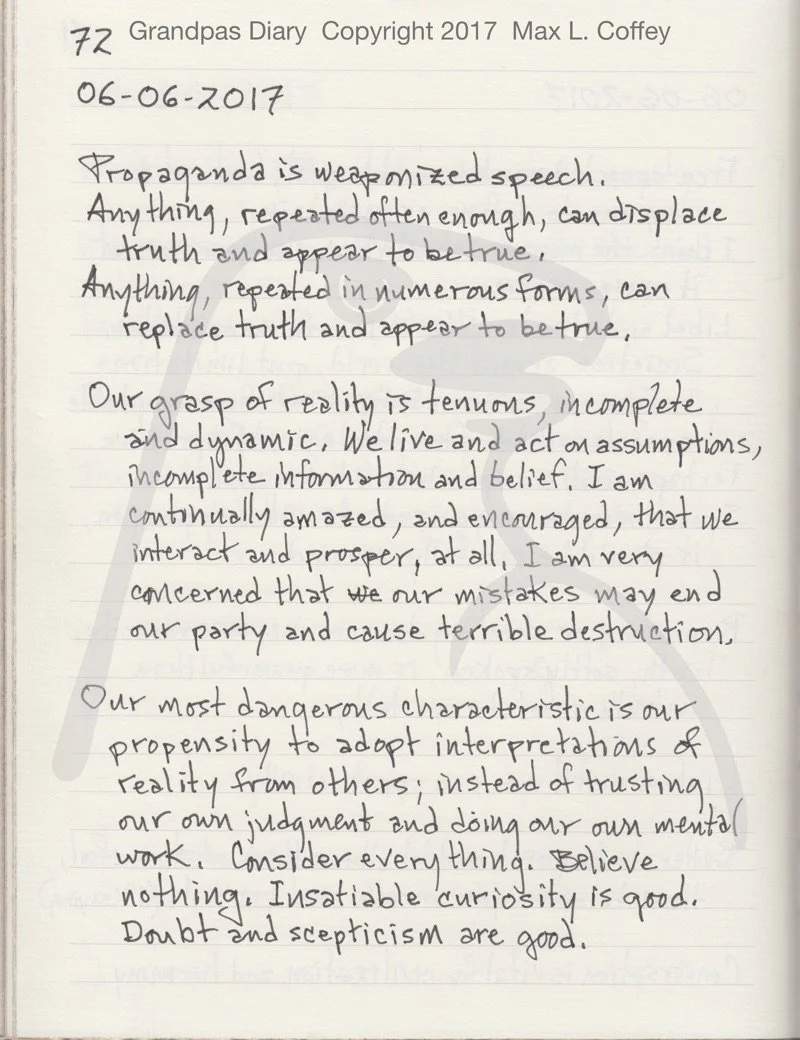 72 Grandpas Diary Copyright 2017 Max L. Coffey
06-06-2017
Propaganda is weaponized speech.
Anything, repeated often enough, can displace
truth and appear to be true.
Anything, repeated in numerous forms, can
replace truth and appear to be true.
Our grasp of reality is tenuous, incomplete
and dynamic. We live and act on assumptions,
incomplete information and belief. I am
continually amazed, and encouraged, that we
interact and prosper, at all. I am very
concerned that we our mistakes may end
our party and cause terrible destruction.
Our most dangerous characteristic is our
propensity to adopt interpretations of
reality from others; instead of trusting
our own judgment and doing our own mental
work. Consider everything. Believe
nothing. Insatiable curiosity is good.
Doubt and scepticism are good.